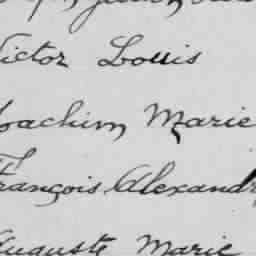 Victor Louis
Joachim Marie
François Alexandre
Auguste Marie